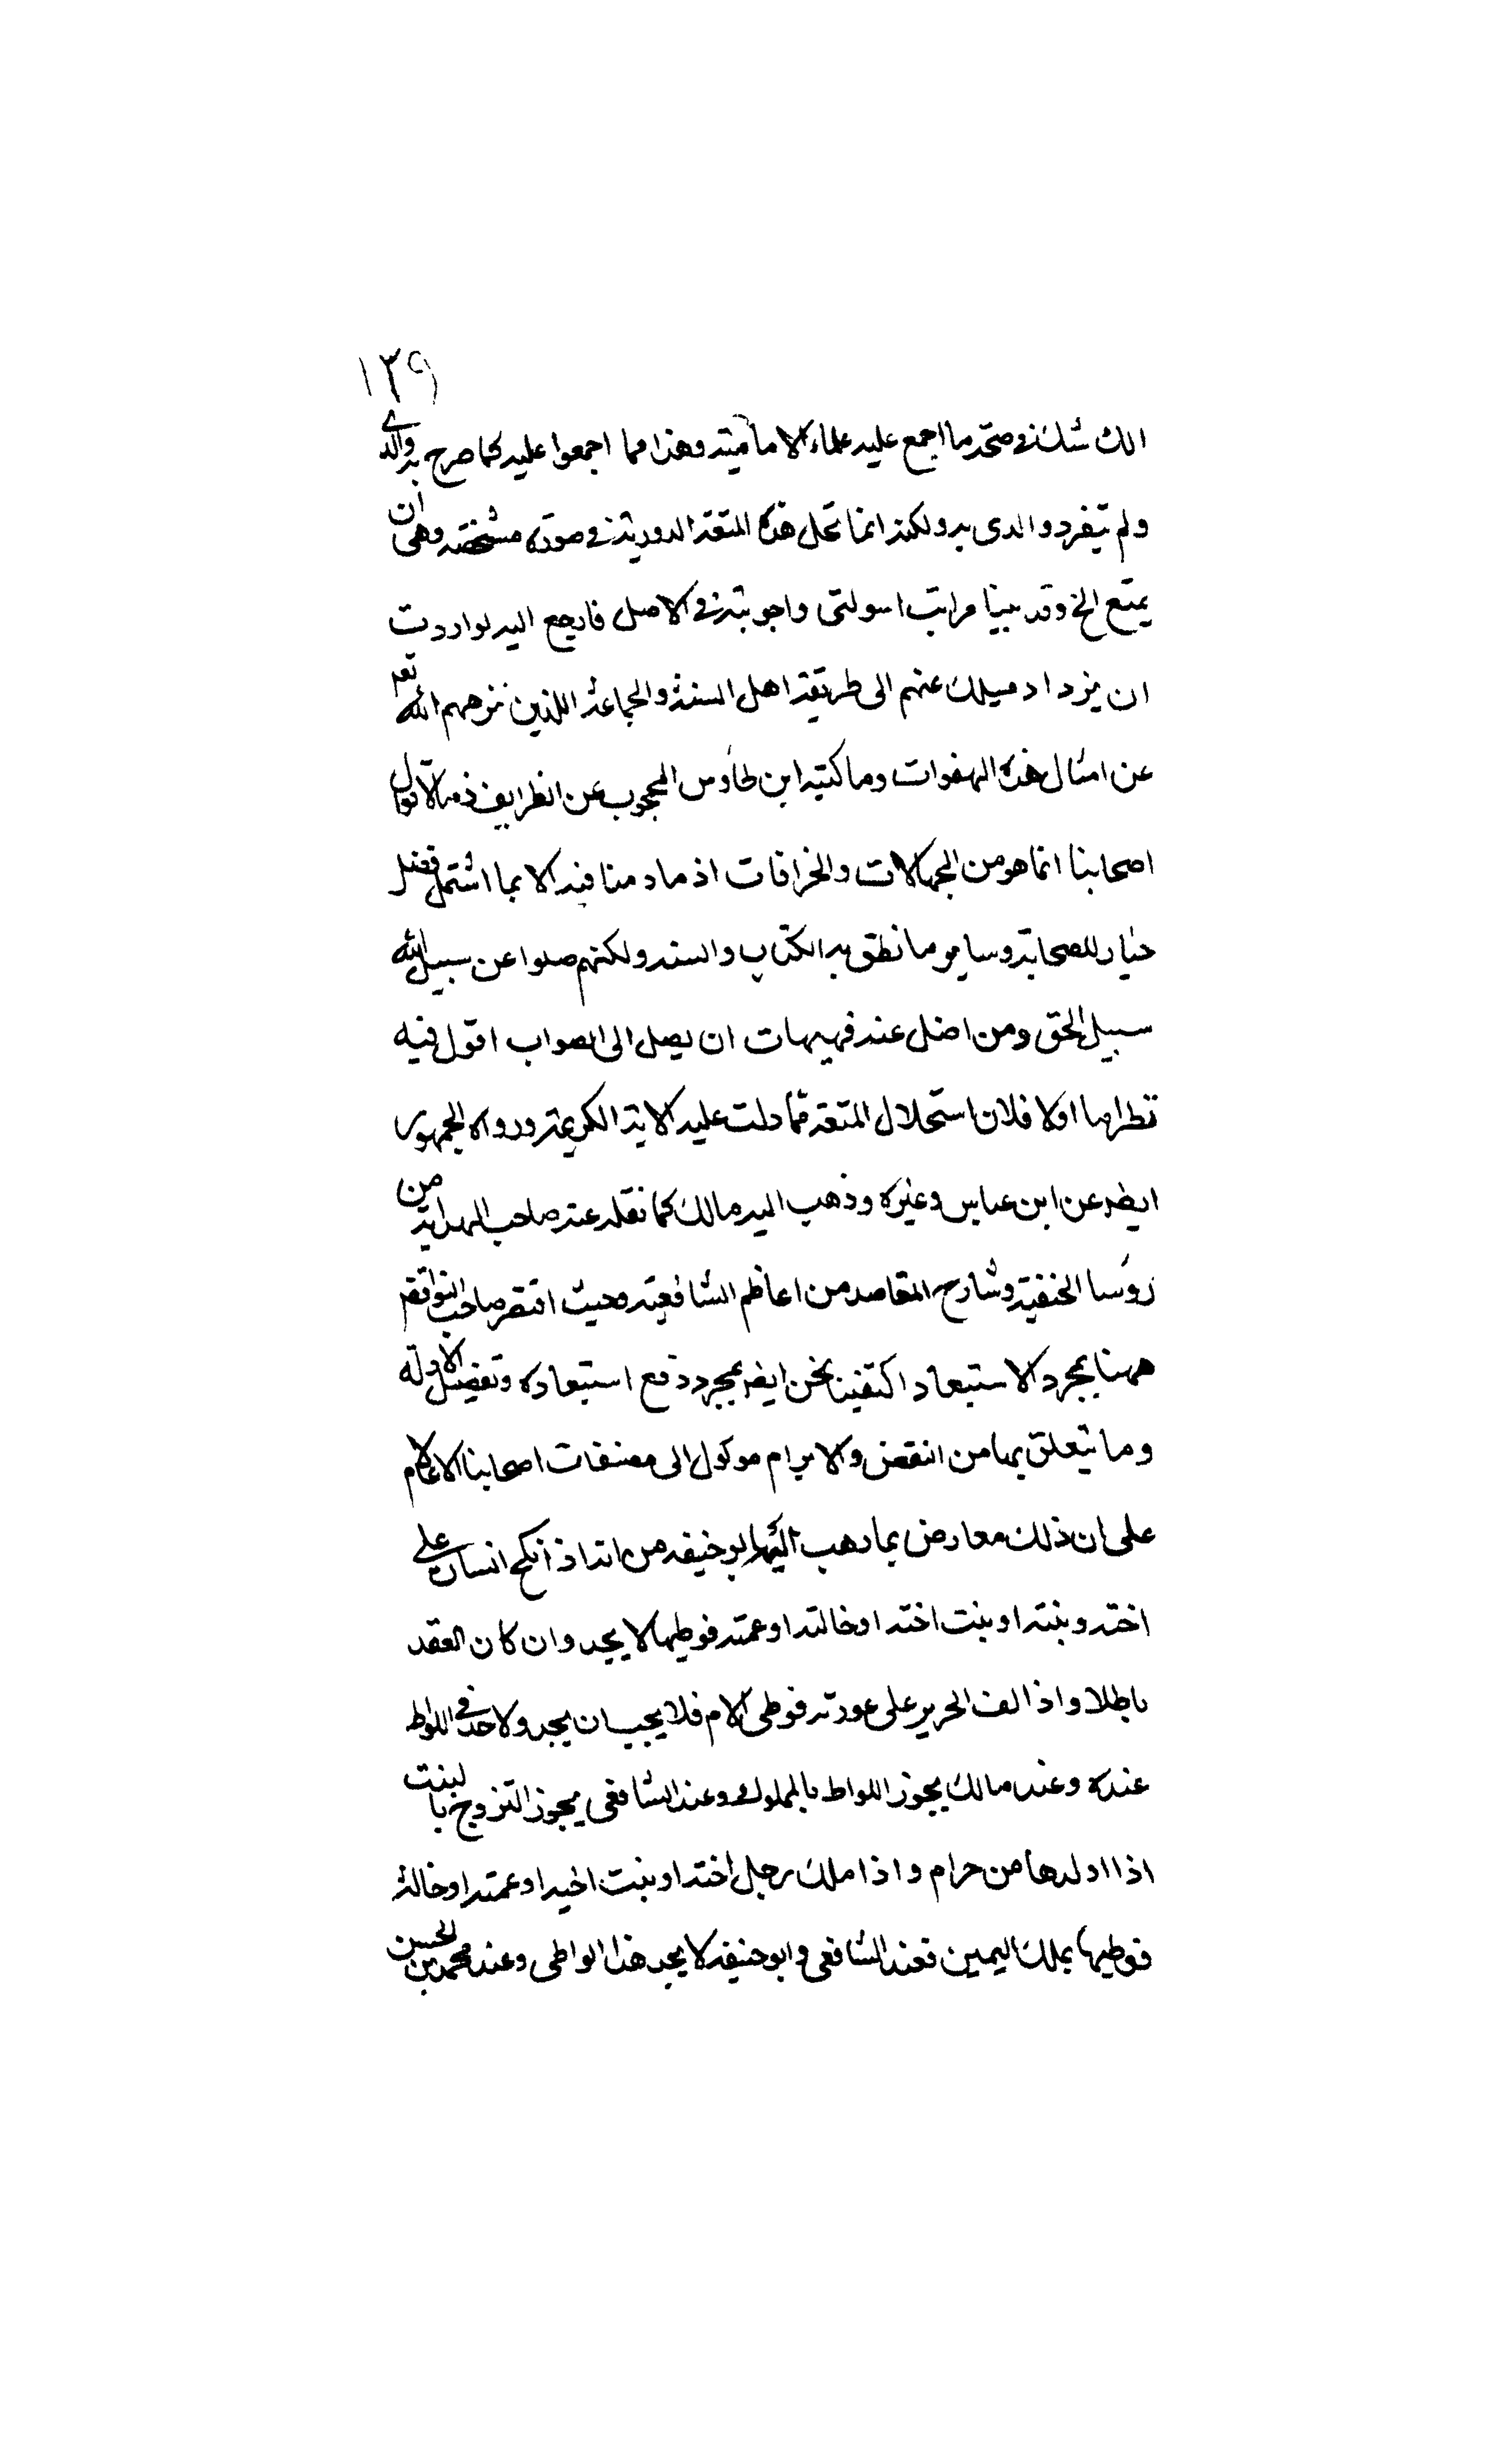 ١٣٩
الك شك في صحة ما اجمع عليه علماء الامامية وهذا مما اجمعوا عليه كما صرح به والدى
ولم يتفرد والدى به ولكنه انما تحل هذه المتعة الدورية في صورة مشخصه وهى ان
يمتع الخ وقد بينا مراتب اسولتى واجوبته في الاصل فارجع اليه لو اردت
ان يزداد ميلك عنهم الى طريقة اهل السنة والجماعة اللذين نزههم الله تعه
عن امثال هذه الهفوات وما كتبه ابن طاوس المحجوب عن الطرايف ذما لاقوال
اصحابنا انما هو من الجهالات والخرافات اذ ما دمنا فيه الا بما اشتمل فضل
خيار للصحابة وساير ما نطق به الكتاب والسنه ولكنهم ضلوا عن سبيل الله
سبيل الحق ومن اضل عنه فهيهات ان يصل الى الصواب اقول فيه
نظر اما اولا فلان استحلال المتعة مما دلت عليه الاية الكريمة ورواه الجمهور
ايضه عن ابن عباس وغيره وذهب اليه مالك كما نقله عنه صاحب الهداية من
رؤسا الحنفية وشارح المقاصد من اعاظم الشافعية وحيث اقتصر صاحب النواقض
ههنا بمجرد الاستبعاد اكتفينا نحن ايضه بمجرد دفع استبعاده وتفصيل الادلة
وما يتعلق بها من النقض والابرام موكول الى مصنفات اصحابنا الاعلام
على ان ذلك معارض بما ذهب اليه ابو حنيفه من انه اذا نكح انسان على
اخته وبنته او بنت اخته او خالته او عمته فوطيها لا يحد وان كان العقد
باطلا واذا لف الحرير على عورته فوطى الام فلا يجب ان يحد ولا حد في اللواط
عنده وعند مالك يجوز اللواط بالمملوك وعند الشافعى يجوز التزوج بالبنت
اذا اولدها من حرام واذا ملك رجل اخته او بنت اخيه او عمته او خالته
فوطيها بملك اليمين فعند الشافعى وابو حنيفه لا يحد هذا الواطى وعند محمد بن الحسن